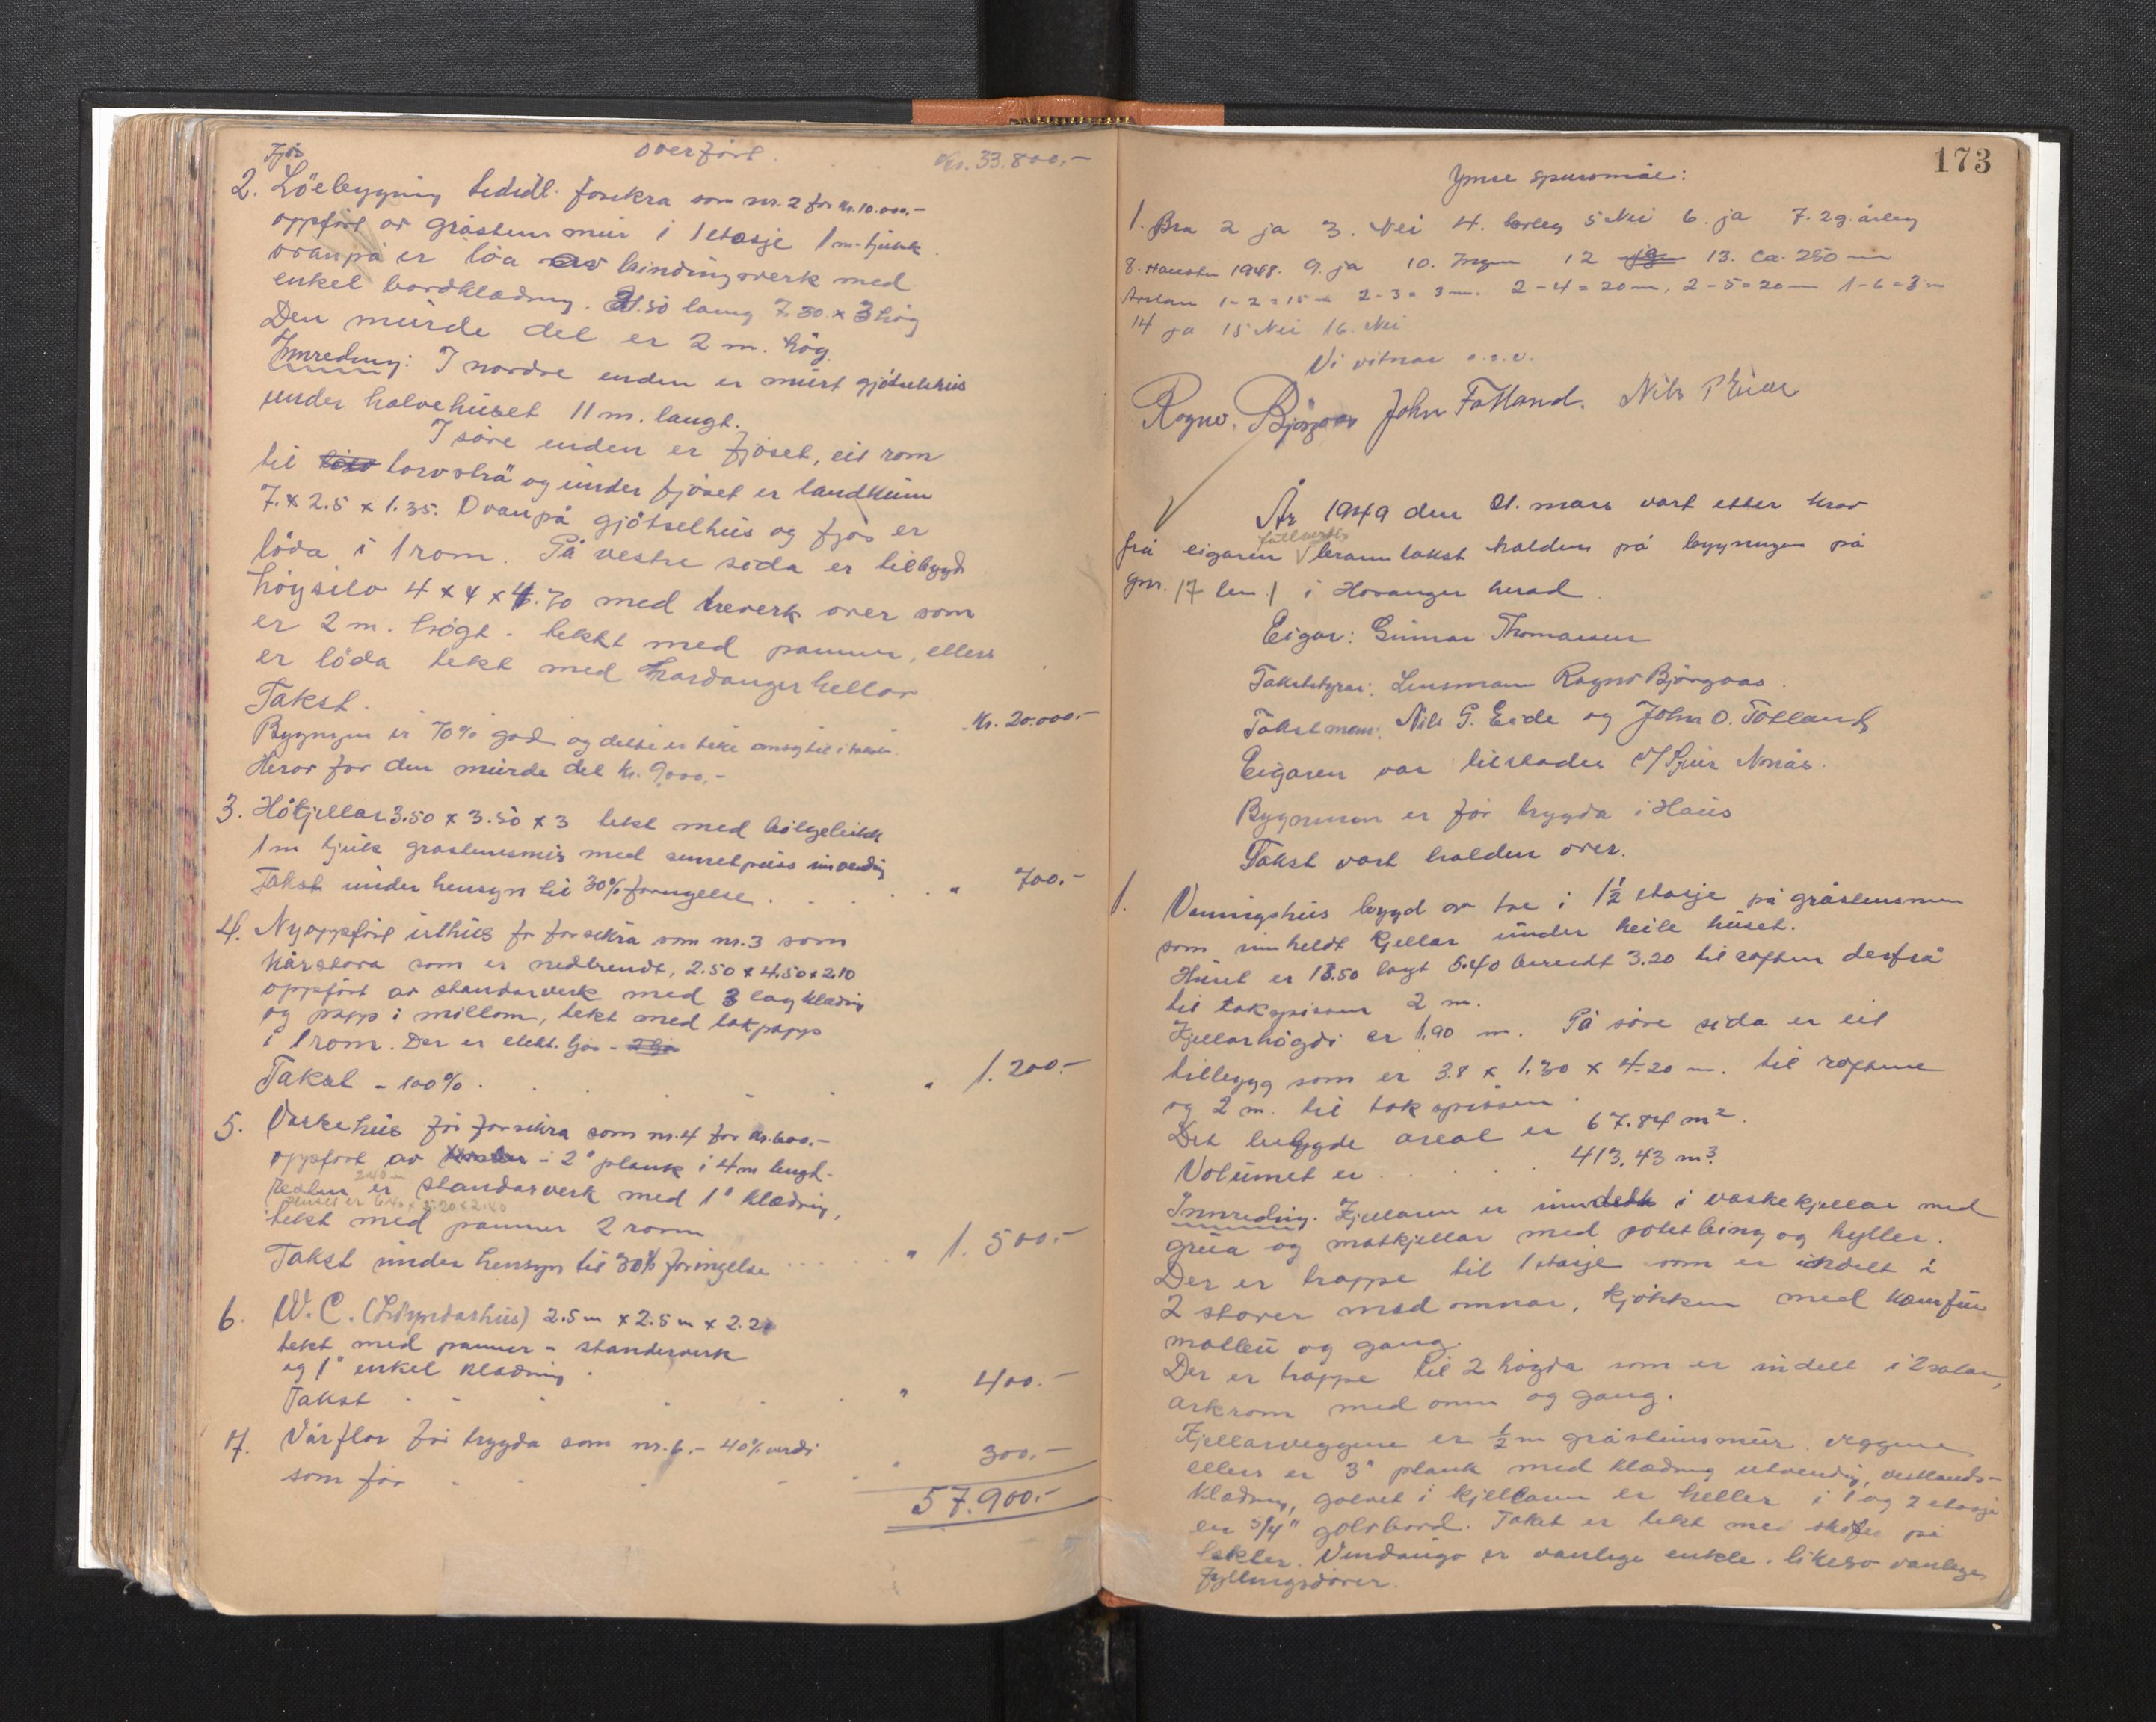 overført.
Kr. 33.800,-
2. Löebygning tidedl. forsikra som nr. 2 for kr. 10.000,-
oppført av gråstens mur i 1 etasje 1 m. tjukk
ovanpå er löa av bindingsverk med
enkel bordklædning. 21.50 lang 7.30 x 3 høg
Den murde del er 2 m. høg.
Innreding: I nordre enden er murt gjötselhus
under halvehuset 11 m. langt.
I søre enden er fjøset, eit rom
til torvströ og under fjøset er landkum
7. x 2.5 x 1.35. Ovanpå gjötselhus og fjös er
löda i 1 rom. På vestre sida er tilbygd
höysilo 4 x 4 x 4.70 med treverk over som
er 2 m. högt - tekkt med pannur, ellers
er löda tekt med Hardangerhellar
Takst.
Kr. 20.000.-
Bygnigen er 70% god og dette er teke omsyn til i taksten.
Herav for den murde del kr. 9.000,-
3. Hökjellar 3.50 x 3.50 x 3 tekt med bölgeblekk
1 m tjukk gråstensmur med sementpuss innvendig
Takst under hensyn til 30% foringelse . . . . " 700.-
4. Nyoppført uthus før forsikra som nr. 3 som
kårstova som er nedbrendt, 2.50 x 4.50 x 2.10
oppført av standarverk med 3 lag klædning
og papp i millom, tekt med takpapp
i 1 rom. Der er elekt. ljos -
Takst - 100% . . . . . " 1.200.-
5. Vaskehus før forsikra som nr. 4 for kr. 600.-
oppført av - 2" plank i 4 m lengd -
2.40 m
resten er standarverk med 1" klædning,
Huset er 6.40 x 3.20 x 2.40
tekt med pannur 2 rom
Takst under hensyn til 30% foringelse . . . . . " 1.500.-
6. W.C. ( ) 2.5 m x 2.5 m x 2.20
tekt med pannur - standerverk
og 1" enkel klædning.
Takst . . . . . " 400.-
7. Vårflor før trygda som nr. 6. - 40% verdi
som før . . . . . " 300.-
57.900.-
173
Ymse spursmål:
1. Bra 2 ja 3. Nei 4. 5 Nei 6. ja 7. 2 g. årleg
8. Hausten 1948. 9. ja 10. Ingen 12 ja 13. ca. 250 m
Avstan 1-2 = 15 m 2-3 = 3 m. 2-4 = 20 m, 2-5 = 20 m 1-6 = 3 m
14 ja 15 Nei 16. Nei
Vi vitnar o.s.v.
Ragnv. Bjørgaas John Totland. Nils P Eide
År 1949 den 21. mars vart etter krav
fullverdis
frå eigaren branntakst halden på bygningen på
gnr. 17 bnr. 1 i Hosanger herad
Eigar: Gunnar Thomassen
Takststyrar: Lensmann Ragnv Bjørgaas.
Takstmenn: Nils G. Eide og John O. Totland
Eigaren var tilstades v/ Sjur Nonås.
Bygnunen er før trygda i Haus
Takst vart halden over.
1. Vaningshus bygd av tre i 1½ etasje på gråstensmur
som innheldt kjellar under heile huset.
Huset er 13.50 langt 5.40 breidt 3.20 til raften derfrå
til takspissen 2 m.
Kjellarhögdi er 1,90 m. På søre sida er eit
tilbygg som er 3.8 x 1.30 x 4.20 m. til raftene
og 2 m. til takspissen.
Det bebygde areal er 67.84 m².
Volumet er . . . . 413.43 m³.
Innreding. Kjellaren er inndelt i vaskekjellar med
grua og matkjellar med potetbing og hyller.
Der er trappe til 1 etasje som er indelt i
2 stover med omnar, kjøkken med komfur
matbu og gang.
Der er trappe til 2 högda som er indelt i 2 salar,
arkrom med omn og gang.
Kjellarveggene er ½ m gråsteinsmur. veggene
ellers er 3" plank med klædning utvendig, vestlands-
klædning, golvet i kjellaren er heller i 1 og 2 etasje
er 5/4" golvbord. Taket er tekt med skifer på
lekter. Vindaugo er vanlege enkle. likeso vanlege
fyllingsdører.